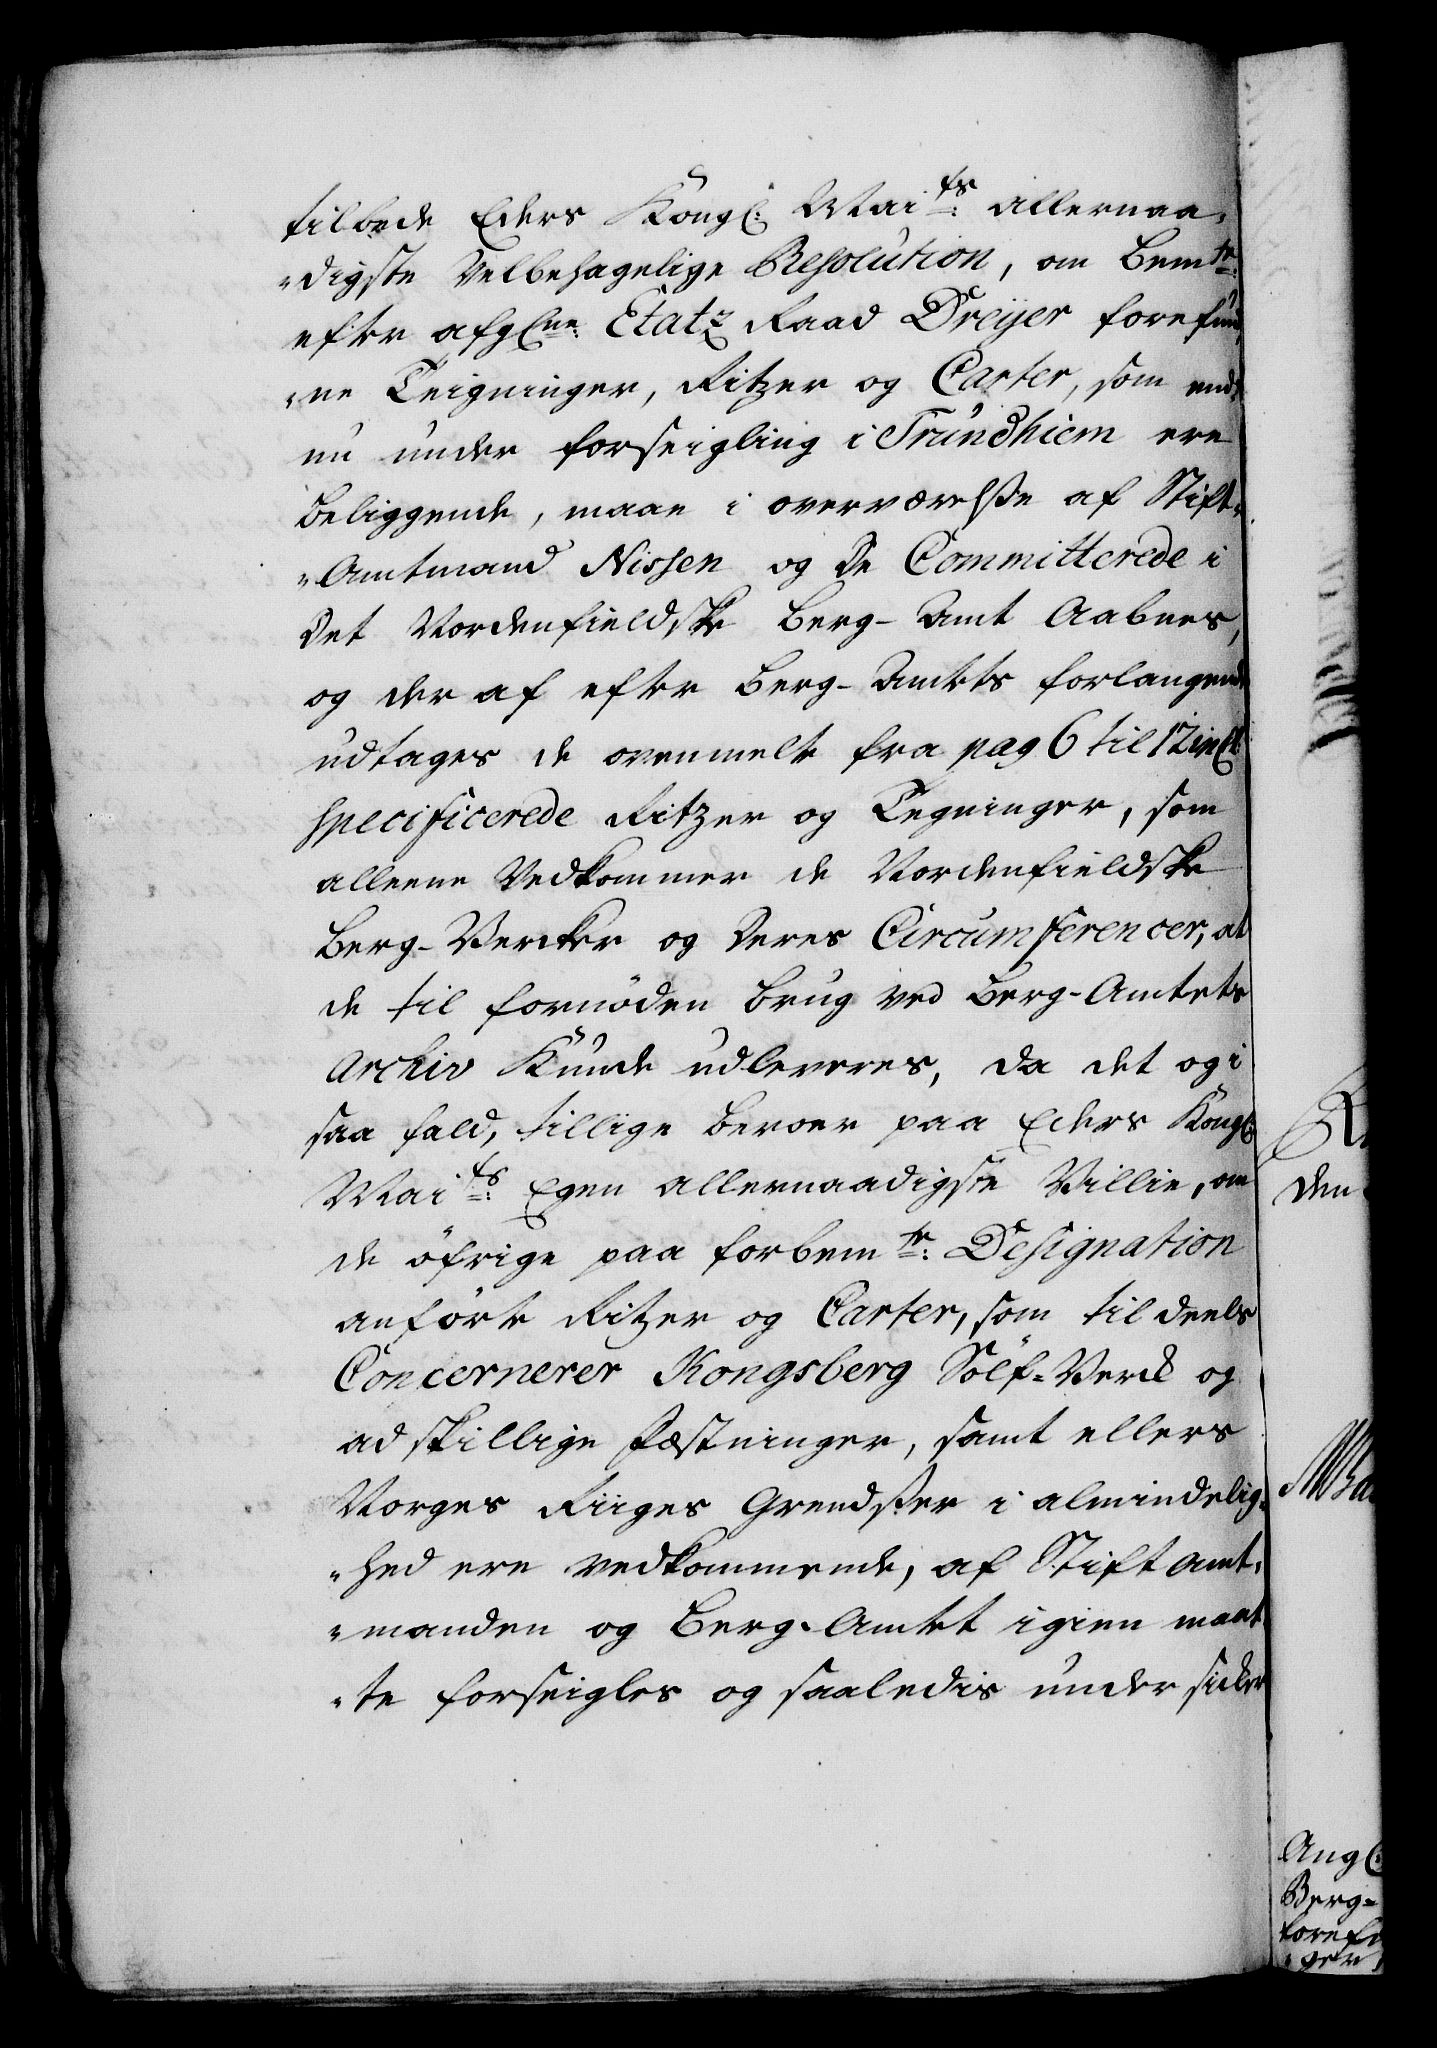 tilbede Eders Kongl: Maits: allernaa,,
,,digste Velbehagelige Resolution, om bemte:
efter afglne: Etatz Raad Dreÿer forefun,,
,,ne Teigninger, Ritzer og Carter, som end,,
nu under forseigling i Trundhiem ere
beliggende, maae i overværelsse af Stift,,
,,Amtmand Nissen og de Committerede i
Det Nordenfieldske Berg-Amt Aabnes,
og der af efter Berg-Amtets forlangende
udtages de ovenmelte fra pag 6 til 12 incl:
specificerede Ritzer og Tegninger, som
alleene Vedkommer de Nordenfieldske
Berg-Vercker og deres Circumferencer, at
de til fornöden brug ved Berg-Amtets
Archiv kunde udleveres, da det og i
saa fald, tillige beroer paa Eders Kongl:
Maits: Egen allernaadigste Villie, om
de öfrige paa forbemte: Designation
anförte Ritzer og Carter, som til deels
Concernerer Kongsberg Sölf-Verck og
adskillige Fæstninger, samt ellers
Norges Riiges Grendsser i almindelig,,
,,hed ere vedkommende, af Stiftamt,,
,,manden og Berg-Amtet igien maat,,
,,te forseigles og saaledis under sicker
den
Angl:
Berg-
forefu
,,ger,